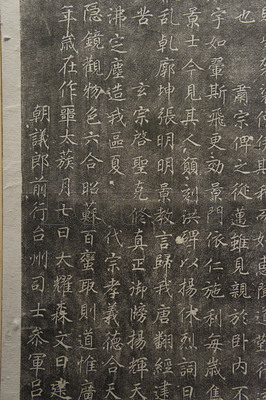 也　肅宗俾之從邁雖見親於卧内不
宇如翬斯飛更効景門依仁施利每歲集
景士今見其人願刻洪碑以揚休烈詞曰
亂乹廓坤張明明景教言歸我唐翻經建
苦　玄宗啓聖克修真正御牓揚輝天
沸定塵造我區夏　代宗孝義德合天
隱鏡觀物色六合昭蘇百蠻取則道惟廣
年歲在作噩太蔟月七日大耀森文日建
朝議郎前行台州司士參軍呂